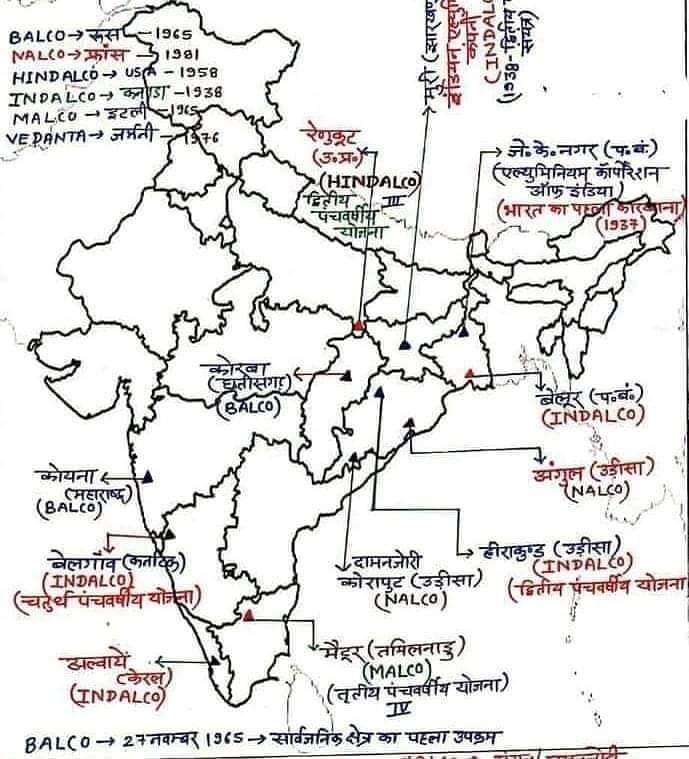 BALCO→ रूस -1965
NALCO→ फ्रांस - 1981
HINDALCO→ USA - 1958
INDALCO→ कनाडा -1938
MALCO→ इटली -1965
VEDANTA→ जर्मनी -1976
मूरी (झारखण्ड
इंडियन एल्युमि
कंपनी
(INDALCO
(1938-द्वितीय
संयंत्र)
रेणुकूट
(उ.प्र.)
(HINDALCO)
द्वितीय III
पंचवर्षीय
योजना
जे.के.नगर (प.बं.)
(एल्युमिनियम कॉर्पोरेशन
ऑफ इंडिया)
(भारत का पहला कारखाना)
(1937)
कोरबा
(छत्तीसगढ़)
(BALCO)
बेलूर (प.बं.)
(INDALCO)
अंगुल (उड़ीसा)
(NALCO)
कोयना
(महाराष्ट्र)
(BALCO)
बेलगाँव (कर्नाटक)
(INDALCO)
(चतुर्थ पंचवर्षीय योजना)
दामनजोरी
कोरापुट (उड़ीसा)
(NALCO)
हीराकुण्ड (उड़ीसा)
(INDALCO)
(द्वितीय पंचवर्षीय योजना)
अल्वाये
(केरल)
(INDALCO)
मैटूर (तमिलनाडु)
(MALCO)
(तृतीय पंचवर्षीय योजना)
IV
BALCO→ 27 नवम्बर 1965→ सार्वजनिक क्षेत्र का पहला उपक्रम